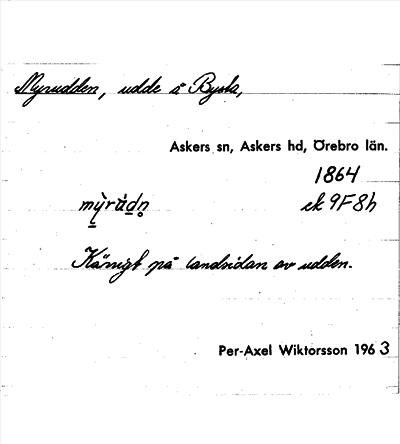 Myrudden, udde å Bysta,
Askers sn, Askers hd, Örebro län.
1864
ek 9F8h
Kärrigt på landsidan av udden.
Per-Axel Wiktorsson 1963